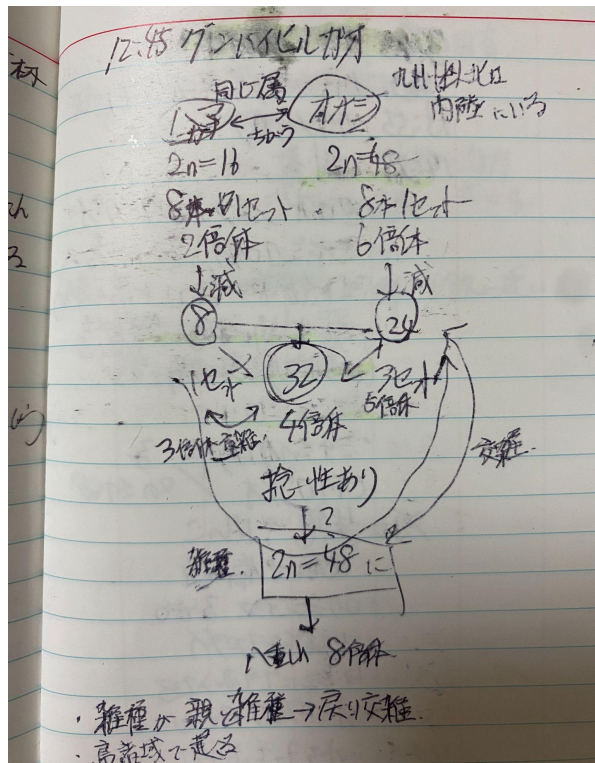 12:45 グンバイヒルガオ
同じ属
九州以北
内陸にいる
ちがう
2n=16 2n=48
8本1セット 8本1セット
2倍体 6倍体
↓減 ↓減
8 24
32
1セット 3セット
5倍体
4倍体
3倍体
交雑
稔性あり
?
雑種 2n=48に
八重山 8倍体
・雑種が親と雑種→戻り交雑
・高音域で起る